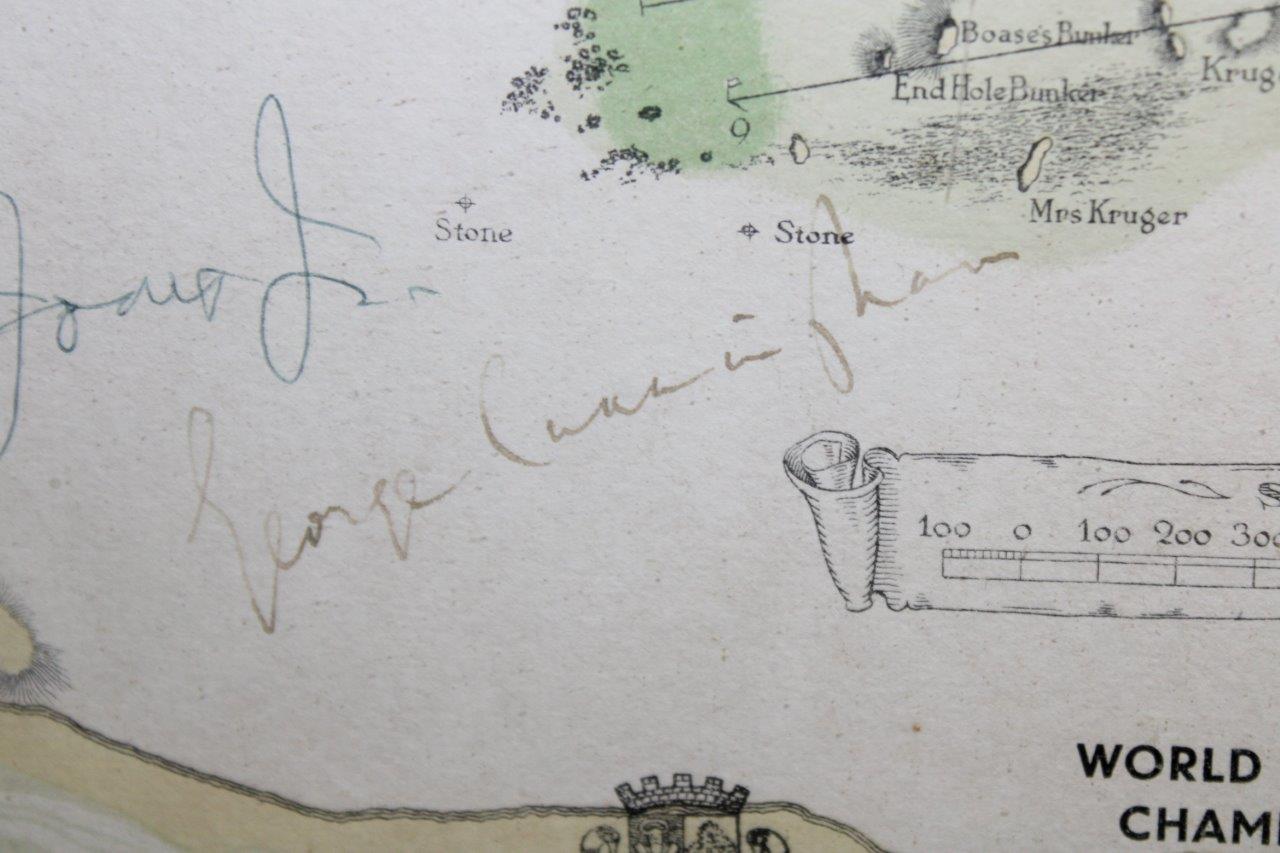 Boase's Bunker
Krug
End Hole Bunker
9
Mrs Kruger
Stone
Stone
Jr.
George Cunningham
100 0 100 200 300
WORLD
CHAM